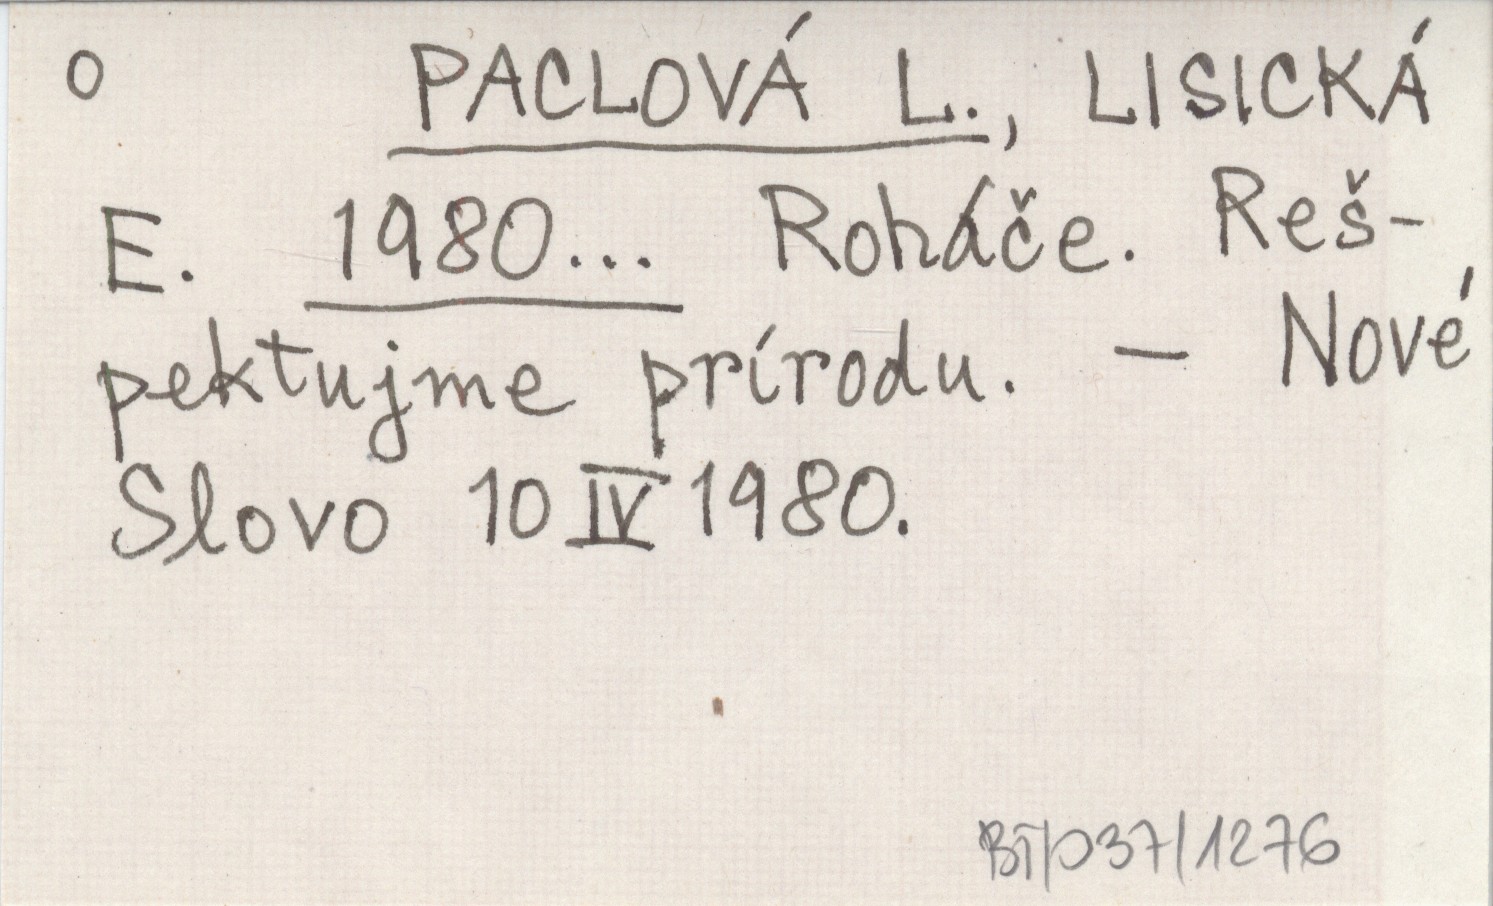 o PACLOVÁ L., LISICKÁ
E. 1980... Roháče. Reš-
pektujme prírodu. — Nové
Slovo 10 IV 1980.
BT/037/1276